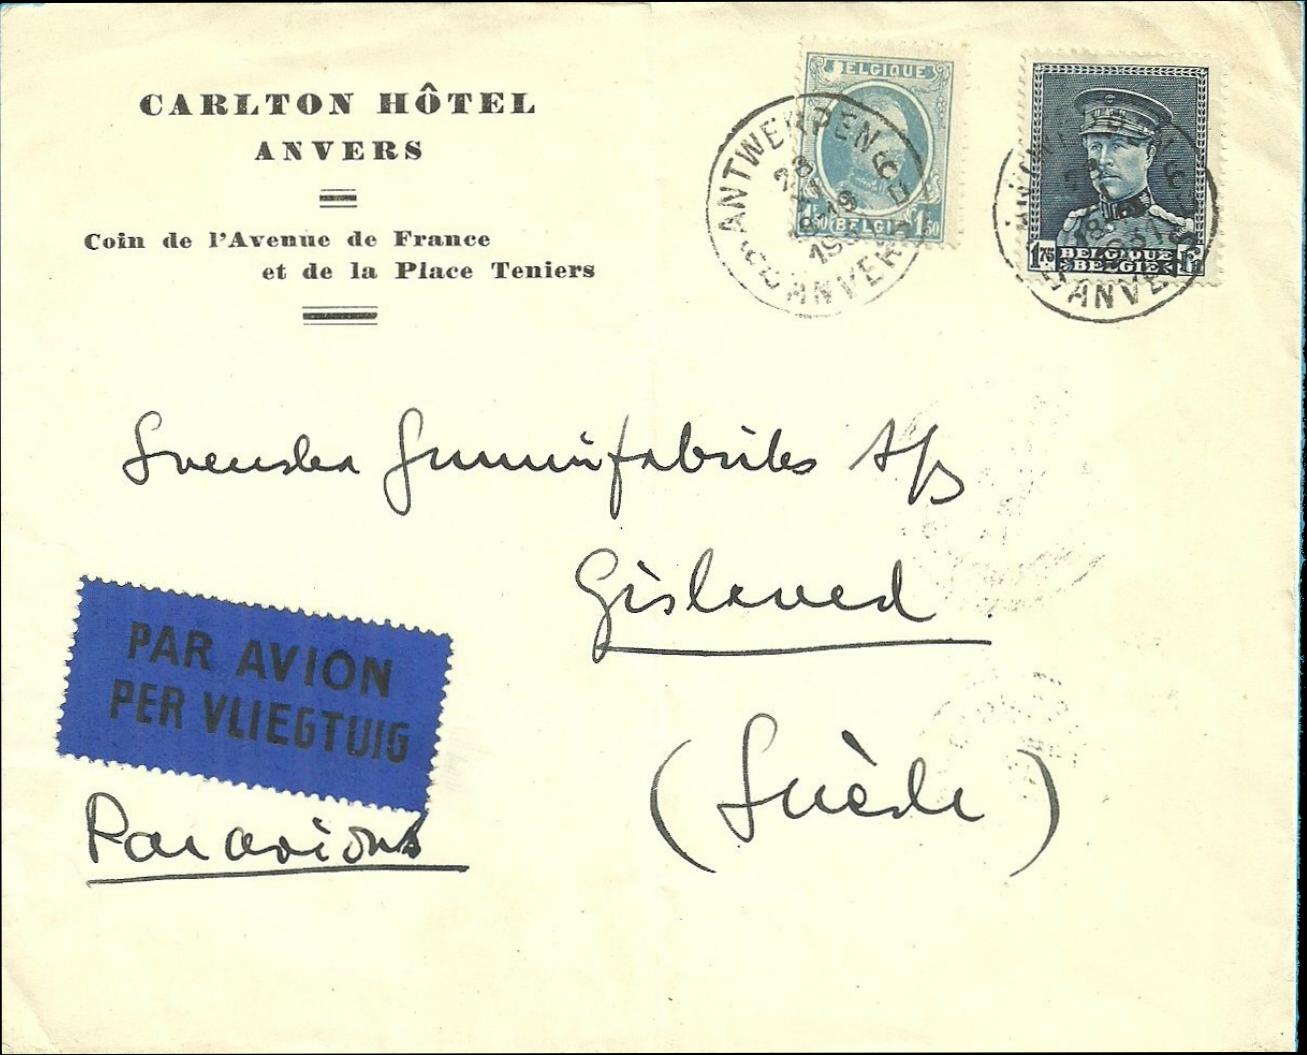 CARLTON HÔTEL
ANVERS
Coin de l'Avenue de France
et de la Place Teniers
BELGIQUE
1F50 BELGIË 1,50
ANTWERPEN 6
ANVERS
1F75 BELGIQUE
BELGIË
ANVERS
Svenska Gummifabriks A/B
Gislaved
(Suède)
PAR AVION
PER VLIEGTUIG
Par avion